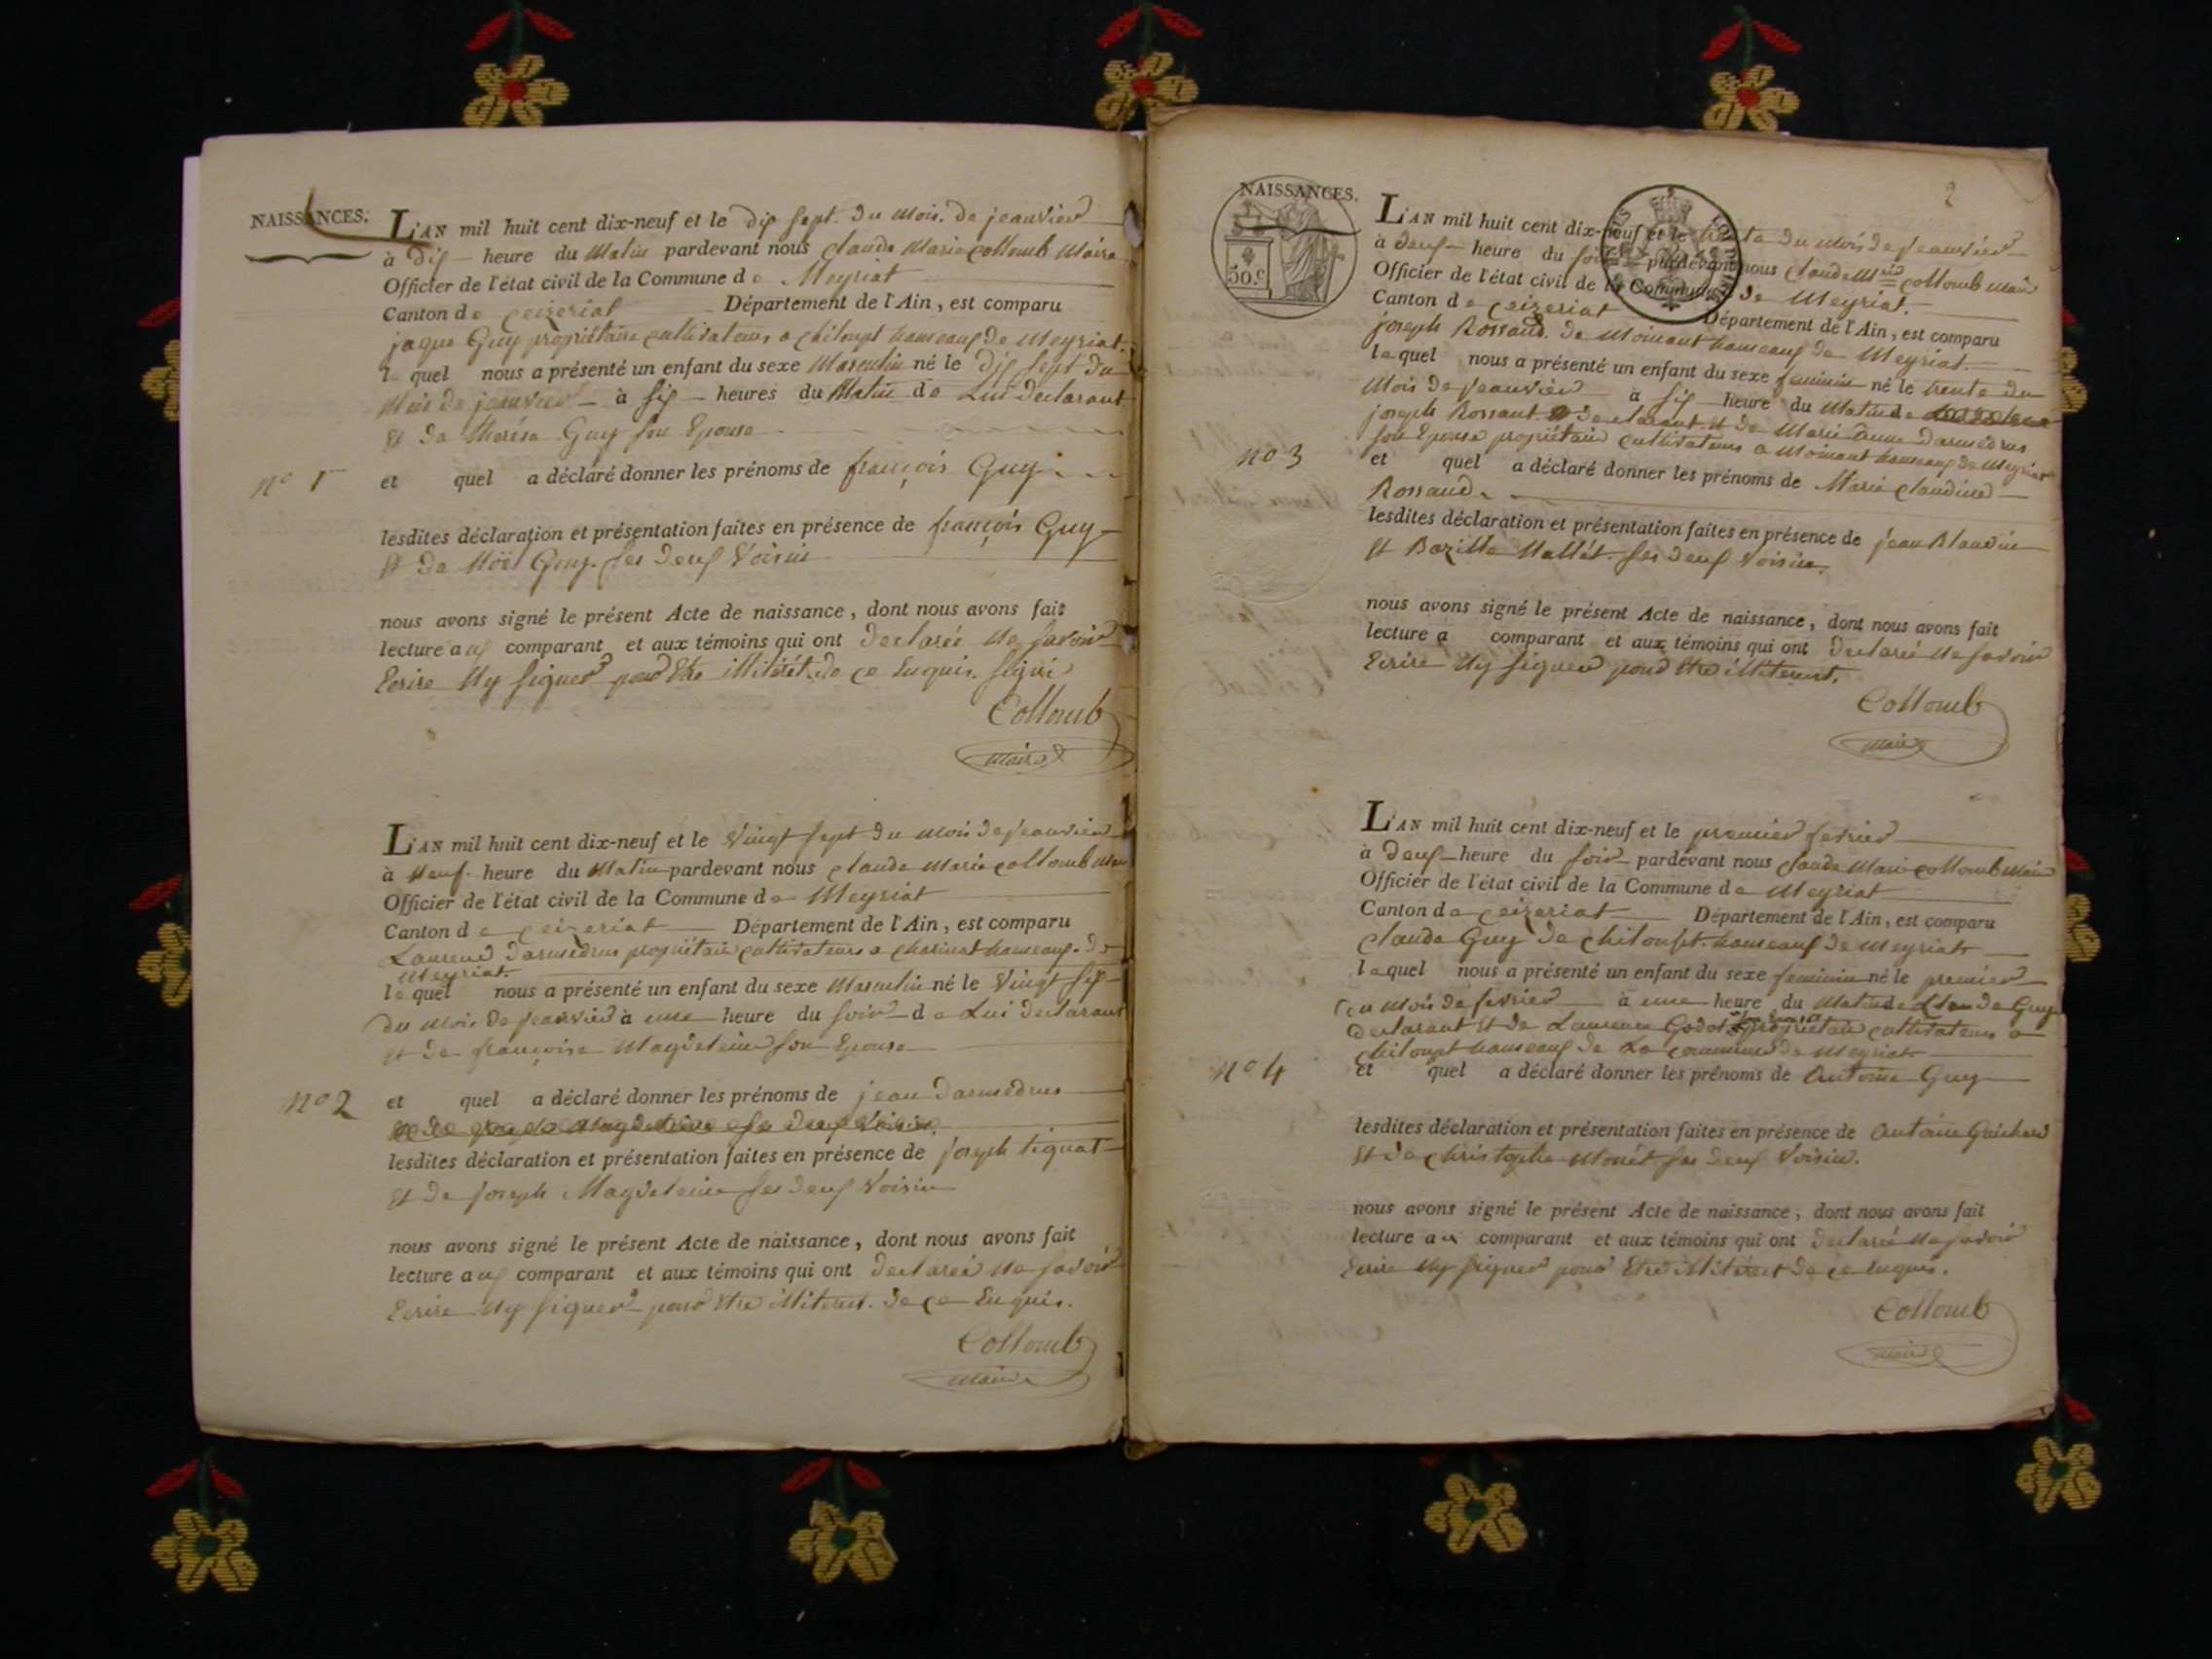 NAISSANCES.
L'AN mil huit cent dix-neuf et le dix sept. du mois. de jeanvier
à dix heure du Matin pardevant nous claude Marie Collomb Maire
Officier de l'état civil de la Commune de Meyriat
Canton de Ceizeriat Département de l'Ain, est comparu
jaque Guy propriétaire cultivateurs a hameaux de Meyriat.
le quel nous a présenté un enfant du sexe Masculin né le dix sept du
Mois de jeanvier à six heures du Matin de Lui declarant
et de Therése Guy son Epouse
no 1
et quel a déclaré donner les prénoms de françois Guy
lesdites déclaration et présentation faites en présence de françois Guy
et de Guy. ses deux Voisin
nous avons signé le présent Acte de naissance, dont nous avons fait
lecture aux comparant et aux témoins qui ont declarée ne savoir
Ecrire Ny signer pour Etre de ce Enquis. signé
Collomb
maire
L'AN mil huit cent dix-neuf et le Vingt sept du mois de jeanvier
à Neuf heure du Matin pardevant nous claude Marie Collomb
Officier de l'état civil de la Commune de Meyriat
Canton de Ceizeriat Département de l'Ain, est comparu
Laurend Darmedrus propriétaire cultivateurs a hameaux. de
Meyriat.
le quel nous a présenté un enfant du sexe Masculin né le Vingt six
du mois de jeanvier à une heure du soir de Lui declarant
et de françoise Magdeleine son Epouse
no 2
et quel a déclaré donner les prénoms de jean Darmedrus
lesdites déclaration et présentation faites en présence de joseph tiquat
et de joseph Magdeleine ses deux Voisin
nous avons signé le présent Acte de naissance, dont nous avons fait
lecture aux comparant et aux témoins qui ont declarée ne savoir
Ecrire Ny signer pour Etre de ce Enquis.
Collomb
maire
2
NAISSANCES.
50.c
L'AN mil huit cent dix-neuf et le trente du mois de jeanvier
à deux heure du soir pardevant nous claude Mrie Collomb
Officier de l'état civil de la Commune de Meyriat.
Canton de Ceizeriat Département de l'Ain, est comparu
joseph Rossand. de Moinant hameaux de Meyriat.
le quel nous a présenté un enfant du sexe feminin né le trente du
Mois de jeanvier à six heure du Matin de
joseph Rossant declarant et de Marie Anne Darmedrus
son Epouse propriétaire cultivateurs a Moinant hameaux de Meyriat
no 3
et quel a déclaré donner les prénoms de Marie Claudine
Rossand.
lesdites déclaration et présentation faites en présence de jean Blandin
et Bazille Mallét. ses deux Voisin.
nous avons signé le présent Acte de naissance, dont nous avons fait
lecture a comparant et aux témoins qui ont declarée ne savoir
Ecrire Ny signer pour Etre
Collomb
maire
L'AN mil huit cent dix-neuf et le premier fevrier
à deux heure du soir pardevant nous claude Marie Collomb
Officier de l'état civil de la Commune de Meyriat
Canton de Ceizeriat Département de l'Ain, est comparu
Claude Guy de hameaux de Meyriat
le quel nous a présenté un enfant du sexe feminin né le premier
du mois de fevrier à une heure du Matin de Claude Guy
declarant et de Laurence Godot propriétaire cultivateurs a
hameaux de La commune de Meyriat
no 4
et quel a déclaré donner les prénoms de Antoine Guy
lesdites déclaration et présentation faites en présence de Antoine Guichard
et de Christophe Monét ses deux Voisin.
nous avons signé le présent Acte de naissance, dont nous avons fait
lecture aux comparant et aux témoins qui ont declarée ne savoir
Ecrire Ny signer pour Etre de ce Enquis.
Collomb
maire